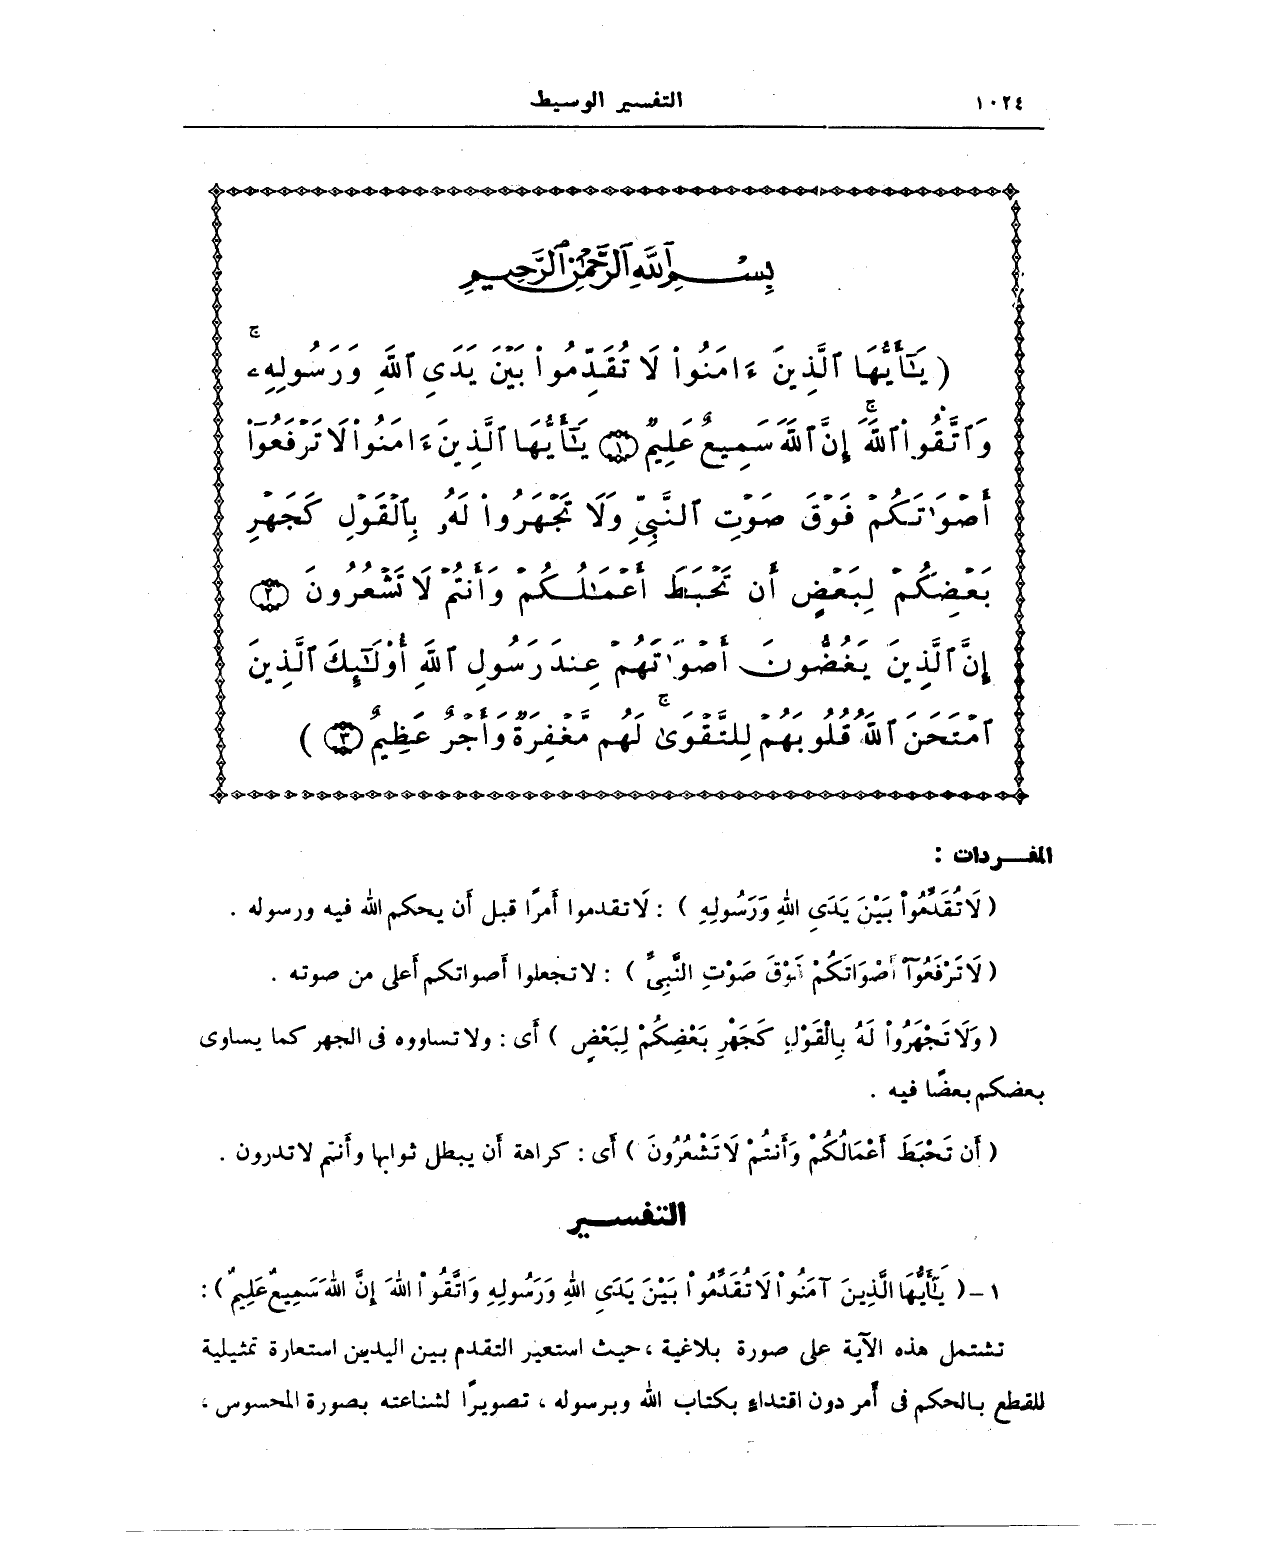 ١٠٢٤ التفسير الوسيط
بِسْمِ ٱللَّهِ ٱلرَّحْمَٰنِ ٱلرَّحِيمِ
( يَـٰٓأَيُّهَا ٱلَّذِينَ ءَامَنُوا۟ لَا تُقَدِّمُوا۟ بَيْنَ يَدَىِ ٱللَّهِ وَرَسُولِهِۦ ۖ
وَٱتَّقُوا۟ ٱللَّهَ ۚ إِنَّ ٱللَّهَ سَمِيعٌ عَلِيمٌ ۝١ يَـٰٓأَيُّهَا ٱلَّذِينَ ءَامَنُوا۟ لَا تَرْفَعُوٓا۟
أَصْوَٰتَكُمْ فَوْقَ صَوْتِ ٱلنَّبِىِّ وَلَا تَجْهَرُوا۟ لَهُۥ بِٱلْقَوْلِ كَجَهْرِ
بَعْضِكُمْ لِبَعْضٍ أَن تَحْبَطَ أَعْمَـٰلُكُمْ وَأَنتُمْ لَا تَشْعُرُونَ ۝٢
إِنَّ ٱلَّذِينَ يَغُضُّونَ أَصْوَٰتَهُمْ عِندَ رَسُولِ ٱللَّهِ أُو۟لَـٰٓئِكَ ٱلَّذِينَ
ٱمْتَحَنَ ٱللَّهُ قُلُوبَهُمْ لِلتَّقْوَىٰ ۚ لَهُم مَّغْفِرَةٌ وَأَجْرٌ عَظِيمٌ ۝٣ )
المفـــردات :
( لَا تُقَدِّمُوا۟ بَيْنَ يَدَىِ اللهِ وَرَسُولِهِ ) : لا تقدموا أمرًا قبل أن يحكم الله فيه ورسوله .
( لَا تَرْفَعُوٓا۟ أَصْوَاتَكُمْ فَوْقَ صَوْتِ النَّبِىِّ ) : لا تجعلوا أصواتكم أعلى من صوته .
( وَلَا تَجْهَرُوا۟ لَهُ بِالْقَوْلِ كَجَهْرِ بَعْضِكُمْ لِبَعْضٍ ) أى : ولا تساووه فى الجهر كما يساوى
بعضكم بعضًا فيه .
( أَن تَحْبَطَ أَعْمَالُكُمْ وَأَنتُمْ لَا تَشْعُرُونَ ) أى : كراهة أن يبطل ثوابها وأنتم لا تدرون .
التفســـير
١ - ( يَـٰٓأَيُّهَا الَّذِينَ آمَنُوا۟ لَا تُقَدِّمُوا۟ بَيْنَ يَدَىِ اللهِ وَرَسُولِهِ وَاتَّقُوا۟ اللهَ إِنَّ اللهَ سَمِيعٌ عَلِيمٌ ) :
تشتمل هذه الآية على صورة بلاغية ، حيث استعير التقدم بين اليدين استعارة تمثيلية
للقطع بالحكم فى أمر دون اقتداءٍ بكتاب الله وبرسوله ، تصويرًا لشناعته بصورة المحسوس ،